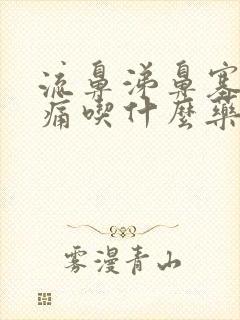 流鼻涕鼻塞
痛喫什麼藥
雾漫青山